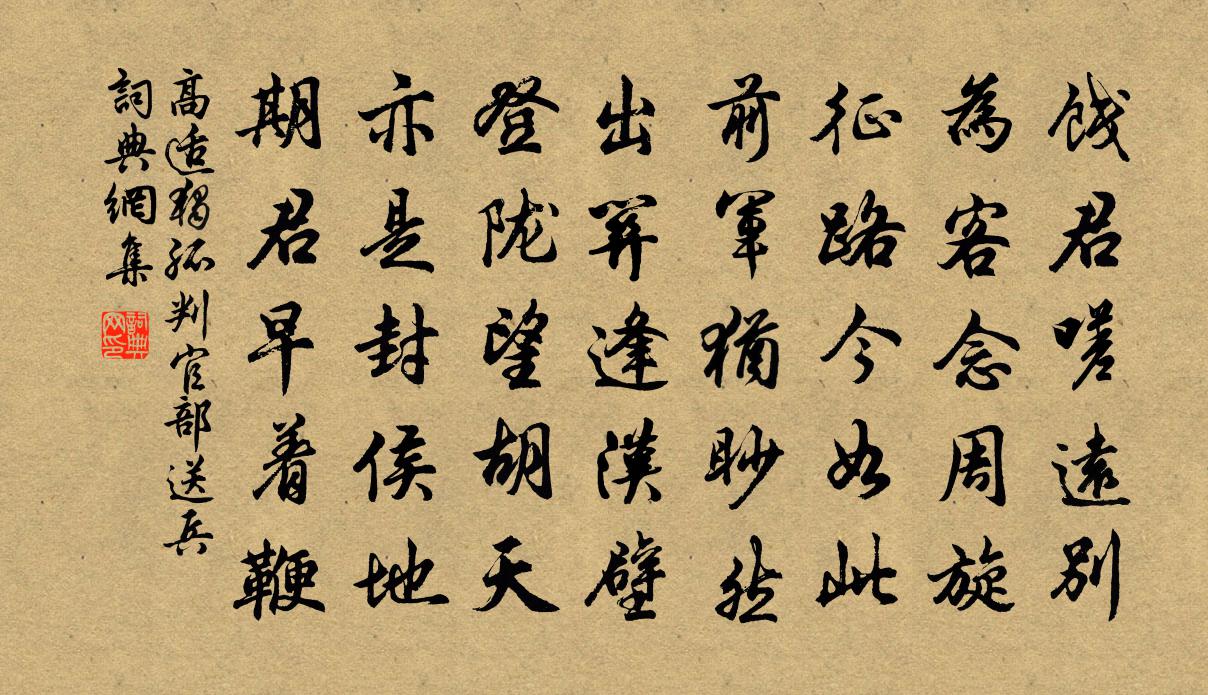 餞君嗟遠別
為客念周旋
征路今如此
前軍猶眇然
出關逢漢壁
登陇望胡天
亦是封侯地
期君早着鞭
高适獨孤判官部送兵
詞典網集
詞典网印